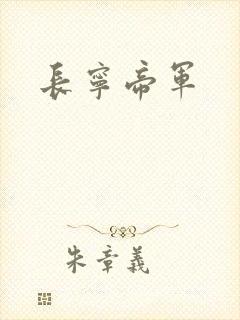 長寧帝軍
朱章義